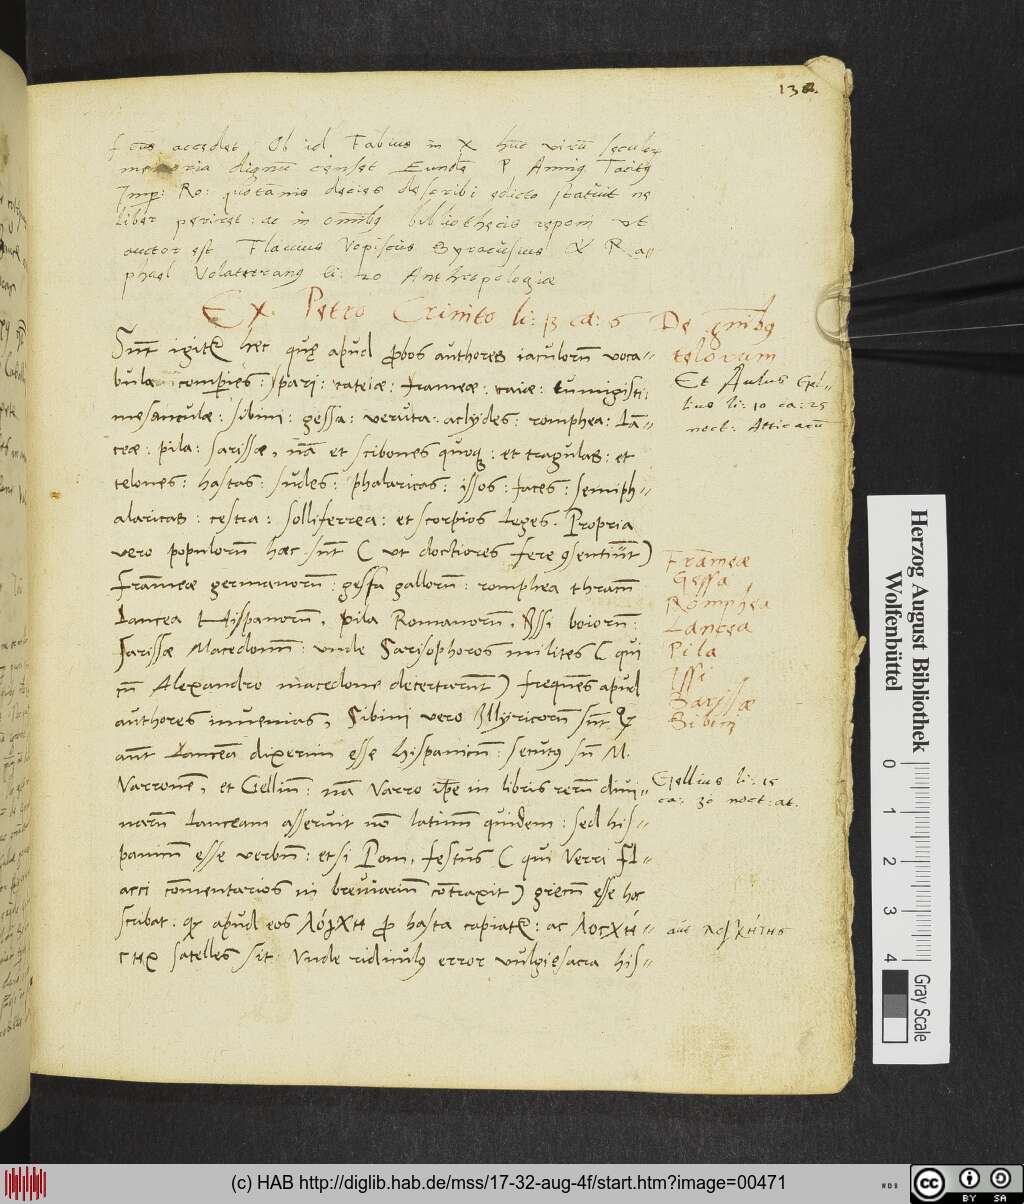 132.
accedet, Ob id Fabius in X hūc virū seculoꝝ
memoria dignū censet Eundē P Anniꝰ Tacitꝰ
Imp: Ro: quotānis decies describi edicto statuit ne
liber periret: ac in omībꝰ bibliothecis reponi ut
auctor est Flauius Vopiscus Syracusius & Ra=
phael Volaterranꝰ li: 20 Anthropologiæ
Ex. Petro Crinito li: 13 ca: 6 De gn̄ibꝰ
telorum
Sūnt igitur hec quę apud ꝓbos authores iaculorū voca=
bula comperies: spari: cateiæ: frameæ: caiæ: rumigisti:
mesanculæ: sibini: gessa: veruta: aclydes: romphea: Lā=
ceæ: pila: sarissæ, nā et scibones quoqꝫ: et tragulas: et
telones: hastas: sudes: phalaricas: issos: faces: semiph=
alaricas: cestra: solliferrea: et scorpios leges. Propria
vero populorū hæc sūt ( ut doctiores fere ꝯsentiūt )
Frāmeæ germanorū: gessa gallorū: romphea thracū
Lancea Hispanorū, pila Romanorū, Issi boiorū:
sarissæ Macedonū: unde Sarisophoros milites ( qui
cū Alexandro macedone decertarūt ) frequēs apud
authores inuenias, Sibini vero Illyricorū sūt Qꝫ
aūt Lancea dixerim esse hispanicū: secutꝰ sū M.
Varronē, et Gelliū: nā Varro ip̄e in libris rerū diui=
narū Lanceam asseruit nō latinū quidem: sed his=
panicū esse verbū: etsi Pom. festus ( qui Verri Fl=
acci cōmentarios in breuiariū cōtraxit ) grecū esse hoc
scribat. qꝫ apud eos λόγχη ꝓ hasta capiatur: ac λογχή=
της satelles sit: Vnde ridiculꝰ error vulgi esacra his=
Et Aulus Gel=
lius li: 10 ca: 25
noct: Atticarū
Frāmeæ
Gessa
Romphea
Lancea
Pila
Issi
Sarissæ
Sibini
Gellius li: 15
ca: 30 noct: at.
Herzog August Bibliothek
Wolfenbüttel
0 1 2 3 4
Gray Scale
(c) HAB http://diglib.hab.de/mss/17-32-aug-4f/start.htm?image=00471
cc BY SA